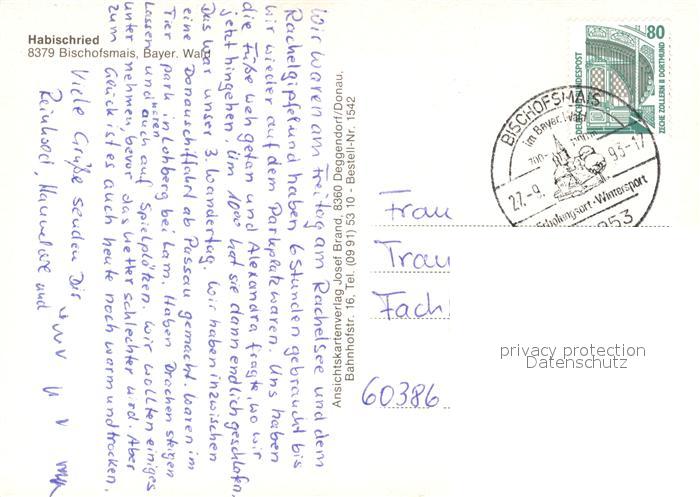 Habischried
8379 Bischofsmais, Bayer. Wald
Wir waren am Freitag am Rachelsee und dem
Rachelgipfel und haben 6 Stunden gebraucht bis
wir wieder auf dem Parkplatz waren. Uns haben
die Füße weh getan und Alexandra fragte, wo wir
jetzt hingehen. Um 10°° hat sie dann endlich geschlafen.
Das war unser 3. Wandertag. Wir haben inzwischen
eine Donauschiffahrt ab Passau gemacht. Waren im
Tierpark in Lohberg bei Lam. Haben Drachen steigen
lassen und waren auch auf Spielplätzen. Wir wollten einiges
unternehmen, bevor das Wetter schlechter wird. Aber
zum Glück ist es auch heute noch warm und trocken.
Viele Grüße senden Dir
Reinhold, Hannelore und
Ansichtskartenverlag Josef Brand, 8360 Deggendorf/Donau,
Bahnhofstr. 16, Tel. (09 91) 53 10 - Bestell-Nr. 1542
80
DEUTSCHE BUNDESPOST
ZECHE ZOLLERN II DORTMUND
BISCHOFSMAIS
im Bayer. Wald
700-
27.-9. 93-17
Erholungsort-Wintersport
Frau
Trau
Fach
60386
privacy protection
Datenschutz